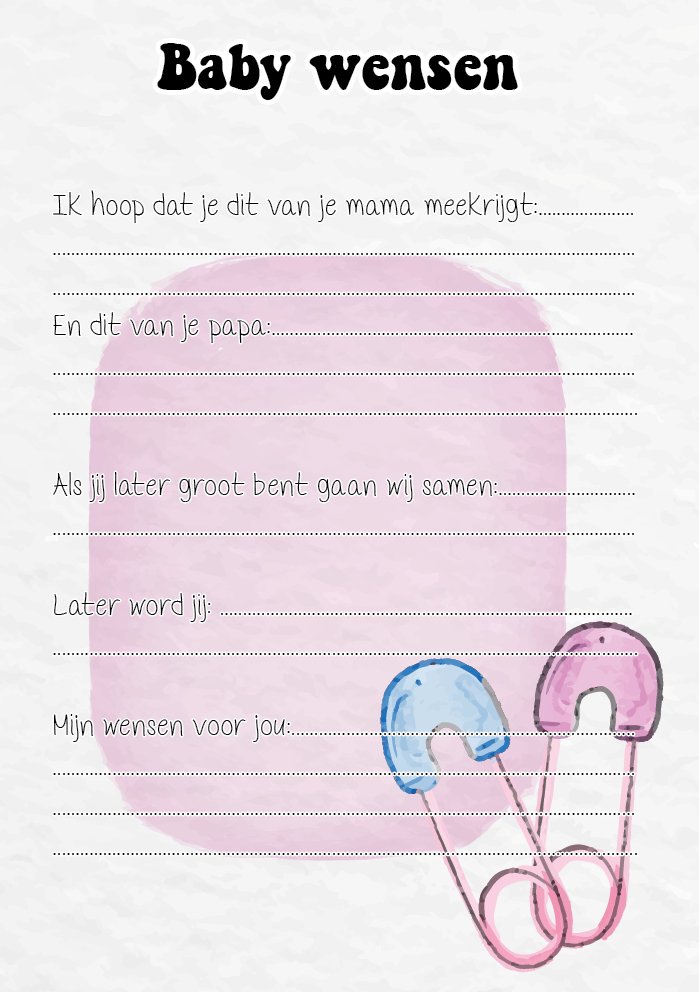 Baby wensen
Ik hoop dat je dit van je mama meekrijgt:....................
................................................................................
................................................................................
En dit van je papa:................................................................
................................................................................
................................................................................
Als jij later groot bent gaan wij samen:..............................
................................................................................
Later word jij: ................................................................
................................................................................
Mijn wensen voor jou:............................................................
................................................................................
................................................................................
................................................................................